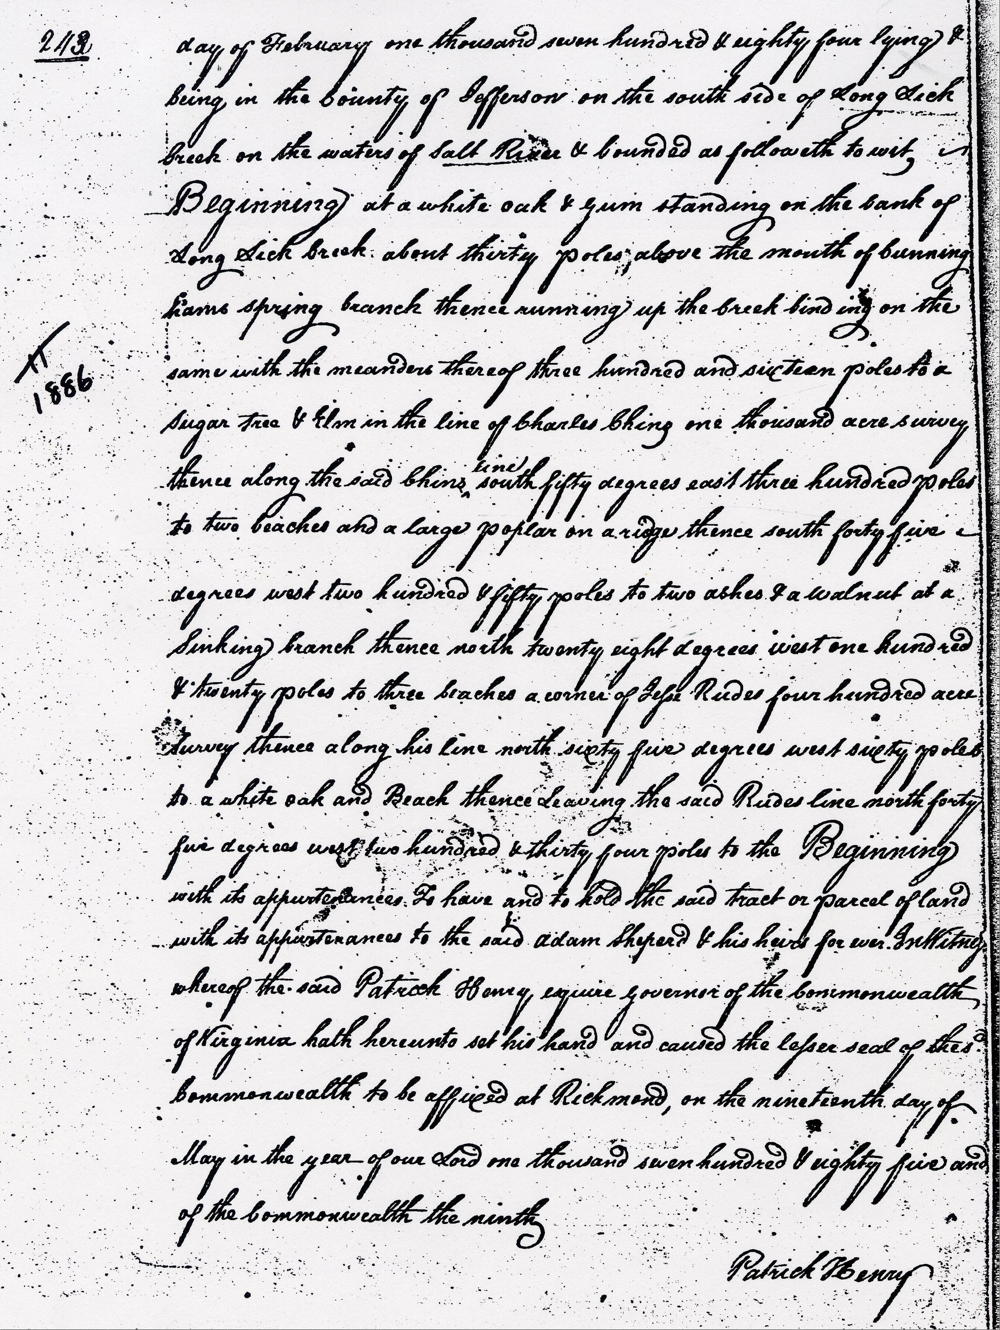 243
day of February one thousand seven hundred & eighty four lying &
being in the County of Jefferson on the south side of Long Lick
Creek on the waters of Salt River & bounded as followeth to wit,
Beginning at a white oak & Gum standing on the bank of
Long Lick Creek about thirty poles above the mouth of Cunning
hams spring branch thence running up the Creek binding on the
same with the meanders thereof three hundred and sixteen poles to a
Sugar Tree & Elm in the line of Charles Ching one thousand acre survey
line
thence along the said Chings south fifty degrees east three hundred poles
to two beaches and a large poplar on a ridge thence south forty five
degrees west two hundred & fifty poles to two ashes & a walnut at a
Sinking branch thence north twenty eight degrees west one hundred
& twenty poles to three beaches a corner of Jesse Rudes four hundred acre
Survey thence along his line north sixty five degrees west sixty poles
to a white oak and Beach thence Leaving the said Rudes line north forty
five degrees west two hundred & thirty four poles to the Beginning
with its appurtenances To have and to hold the said tract or parcel of land
with its appurtenances to the said Adam Sheperd & his heirs for ever. In Witness
whereof the said Patrick Henry, esquire Governor of the Commonwealth
of Virginia hath hereunto set his hand and caused the lesser seal of the sd.
Commonwealth to be affixed at Richmond, on the nineteenth day of
May in the year of our Lord one thousand seven hundred & eighty five and
of the Commonwealth the ninth
Patrick Henry
1886